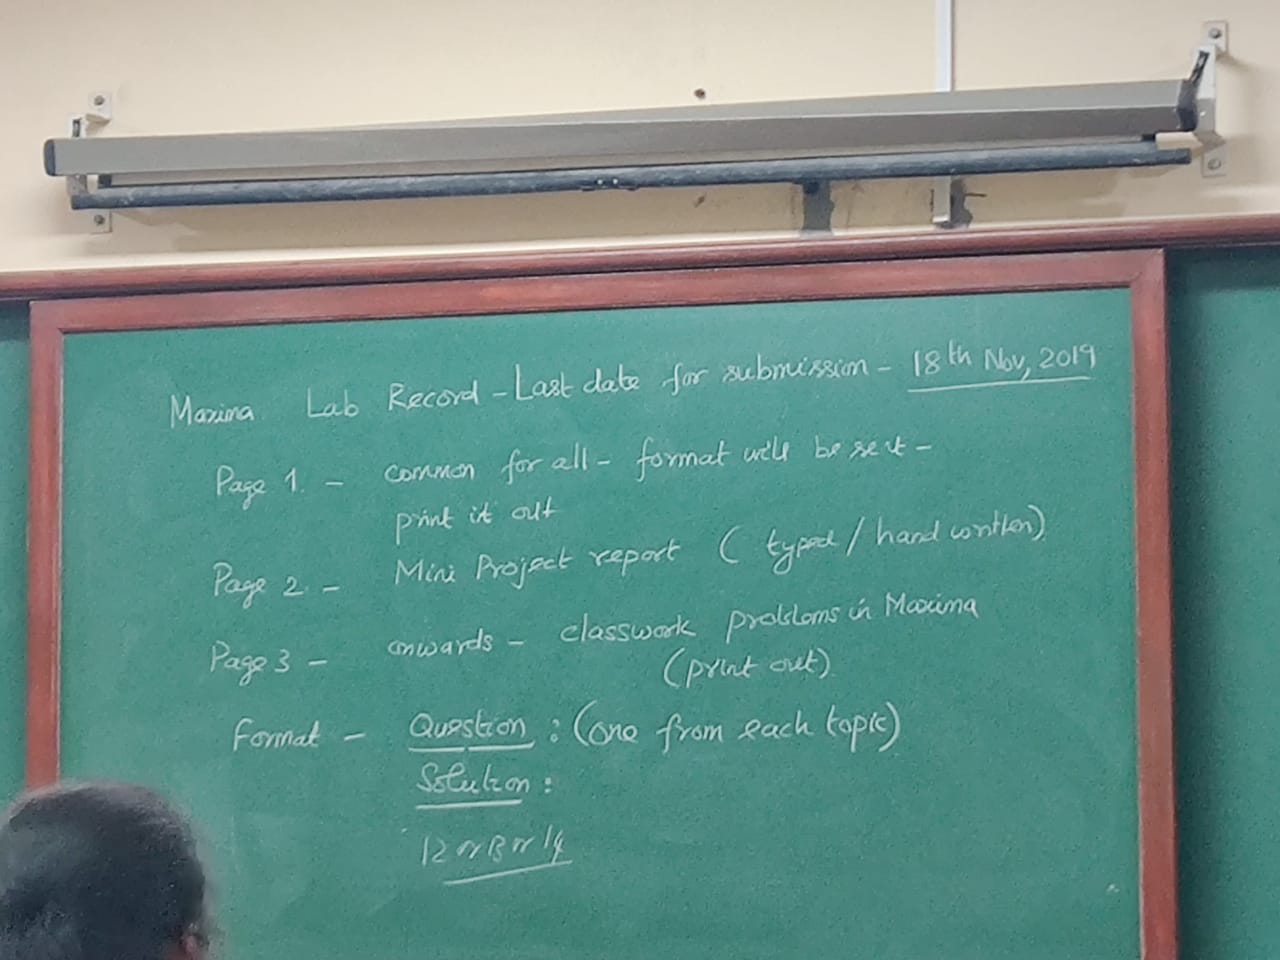 Maxima Lab Record - Last date for submission - 18th Nov, 2019
Page 1. - common for all - format will be sent -
print it out
Page 2. - Mini Project report ( typed / hand written)
Page 3 - onwards - classwork problems in Maxima
(print out)
Format - Question : (one from each topic)
Solution :
12 or 13 or 14